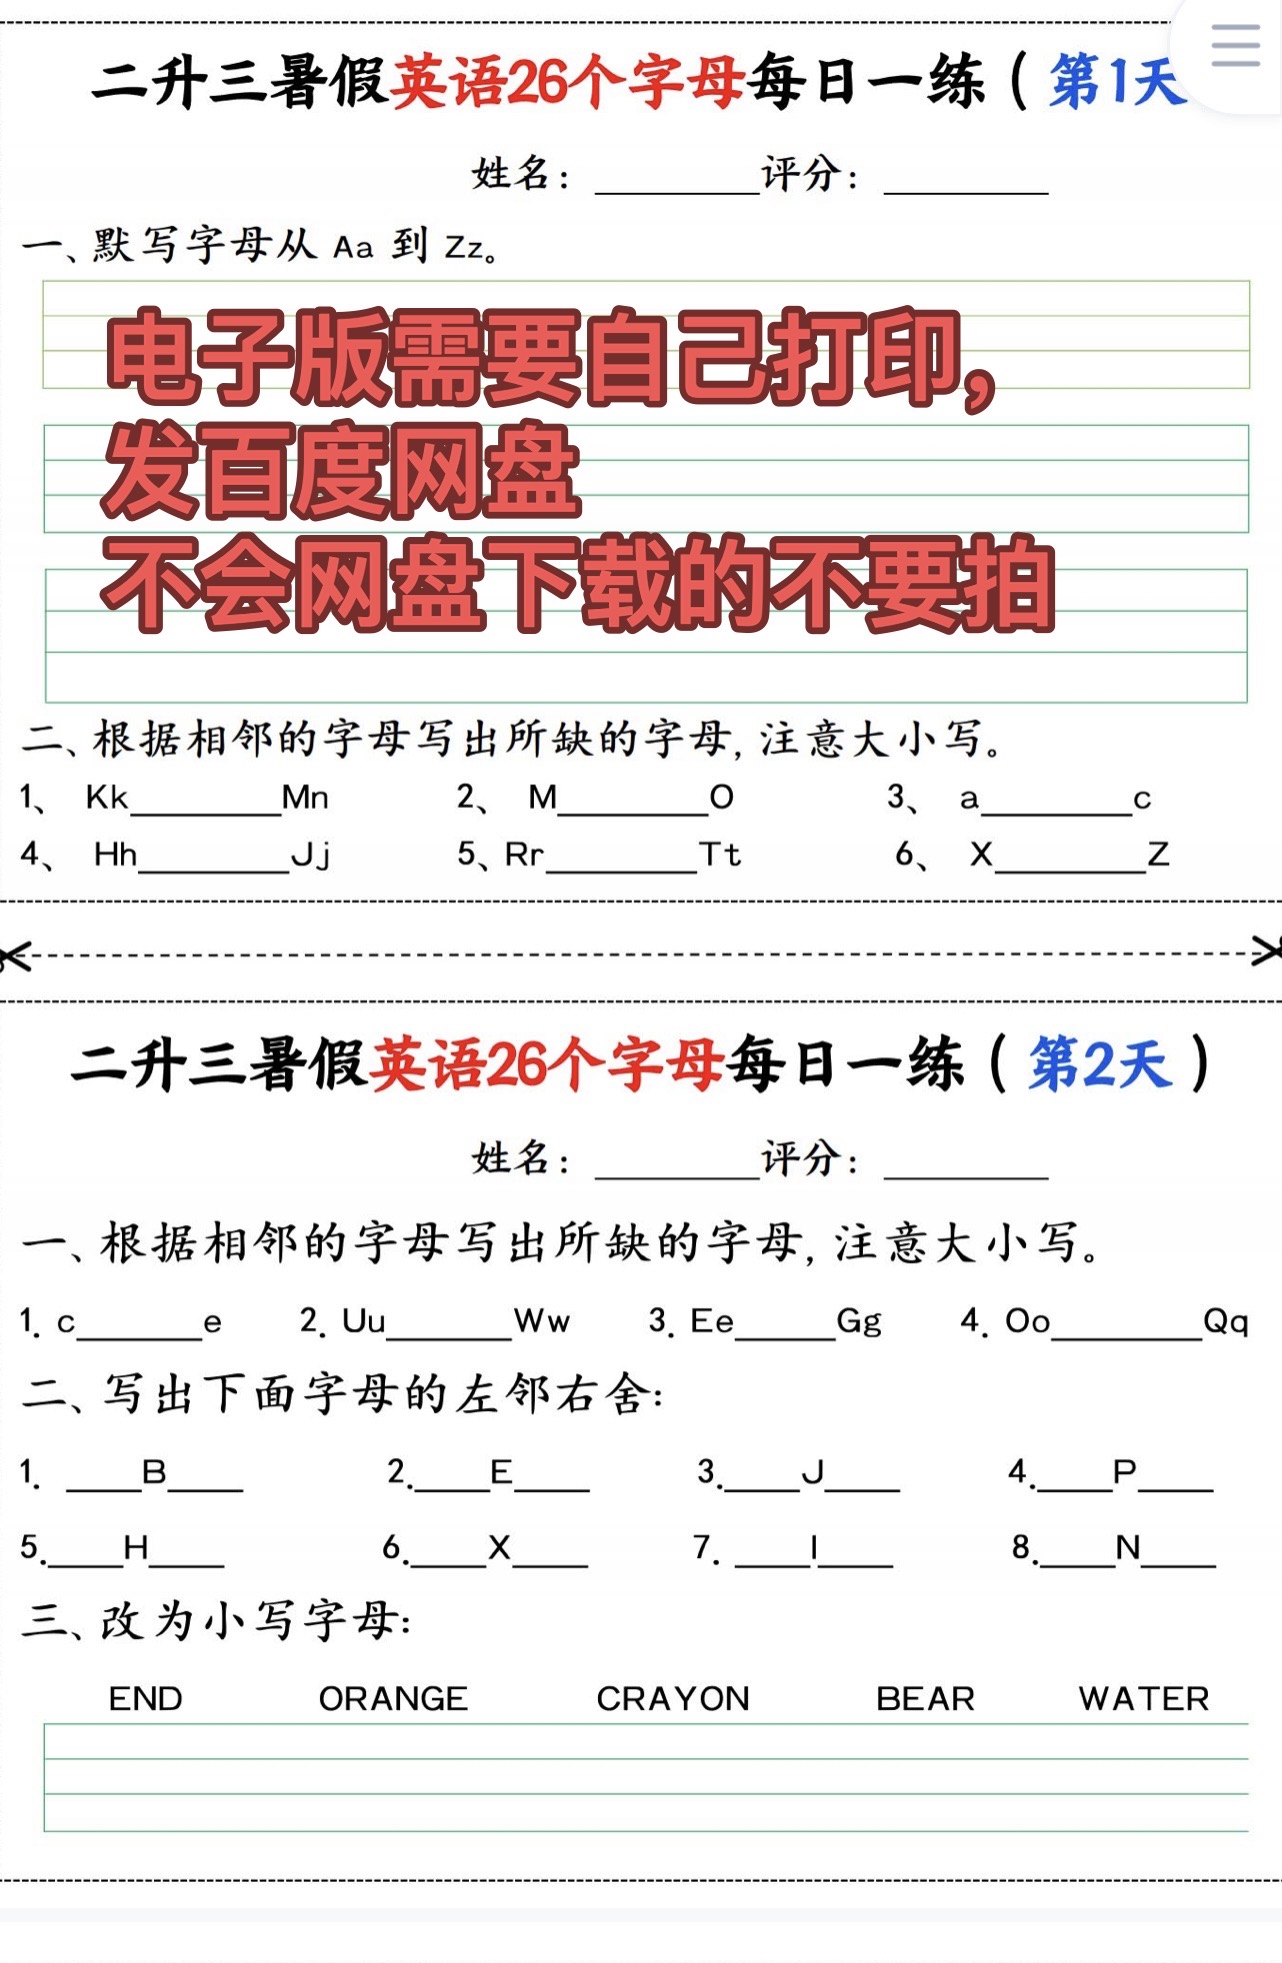 二升三暑假英语26个字母每日一练（第1天
姓名：________评分：________
一、默写字母从 Aa 到 Zz。
电子版需要自己打印，
发百度网盘
不会网盘下载的不要拍
二、根据相邻的字母写出所缺的字母，注意大小写。
1、 Kk________Mn 2、 M________O 3、 a________c
4、 Hh________Jj 5、Rr________Tt 6、 X________Z
二升三暑假英语26个字母每日一练（第2天）
姓名：________评分：________
一、根据相邻的字母写出所缺的字母，注意大小写。
1. c______e 2. Uu______Ww 3. Ee_____Gg 4. Oo________Qq
二、写出下面字母的左邻右舍：
1. ____B____ 2.____E____ 3.____J____ 4.____P____
5.____H____ 6.____X____ 7. ____I____ 8.____N____
三、改为小写字母：
END ORANGE CRAYON BEAR WATER